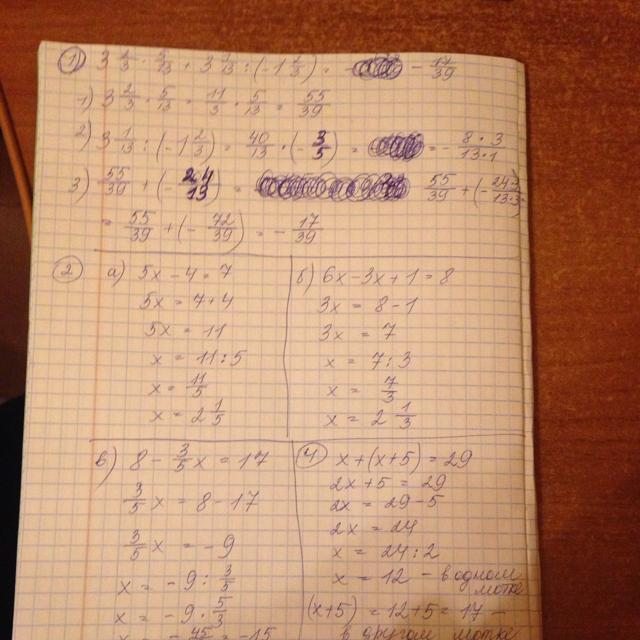 ① 3 2/3 · 5/13 + 3 1/13 : (-1 2/3) = - 17/39
1) 3 2/3 · 5/13 = 11/3 · 5/13 = 55/39
2) 3 1/13 : (-1 2/3) = 40/13 · (-3/5) = = - 8·3/13·1
3) 55/39 + (-24/13) = 55/39 + (-24·3/13·3)
= 55/39 + (-72/39) = - 17/39
② а) 5x - 4 = 7
5x = 7+4
5x = 11
x = 11:5
x = 11/5
x = 2 1/5
б) 6x - 3x + 1 = 8
3x = 8 - 1
3x = 7
x = 7:3
x = 7/3
x = 2 1/3
в) 8 - 3/5 x = 17
3/5 x = 8 - 17
3/5 x = -9
x = -9 : 3/5
x = -9 · 5/3
x = - 45/ = -15
④ x + (x+5) = 29
2x + 5 = 29
2x = 29 - 5
2x = 24
x = 24:2
x = 12 - в одном
мотке
(x+5) = 12+5 = 17 -
в другом мотке